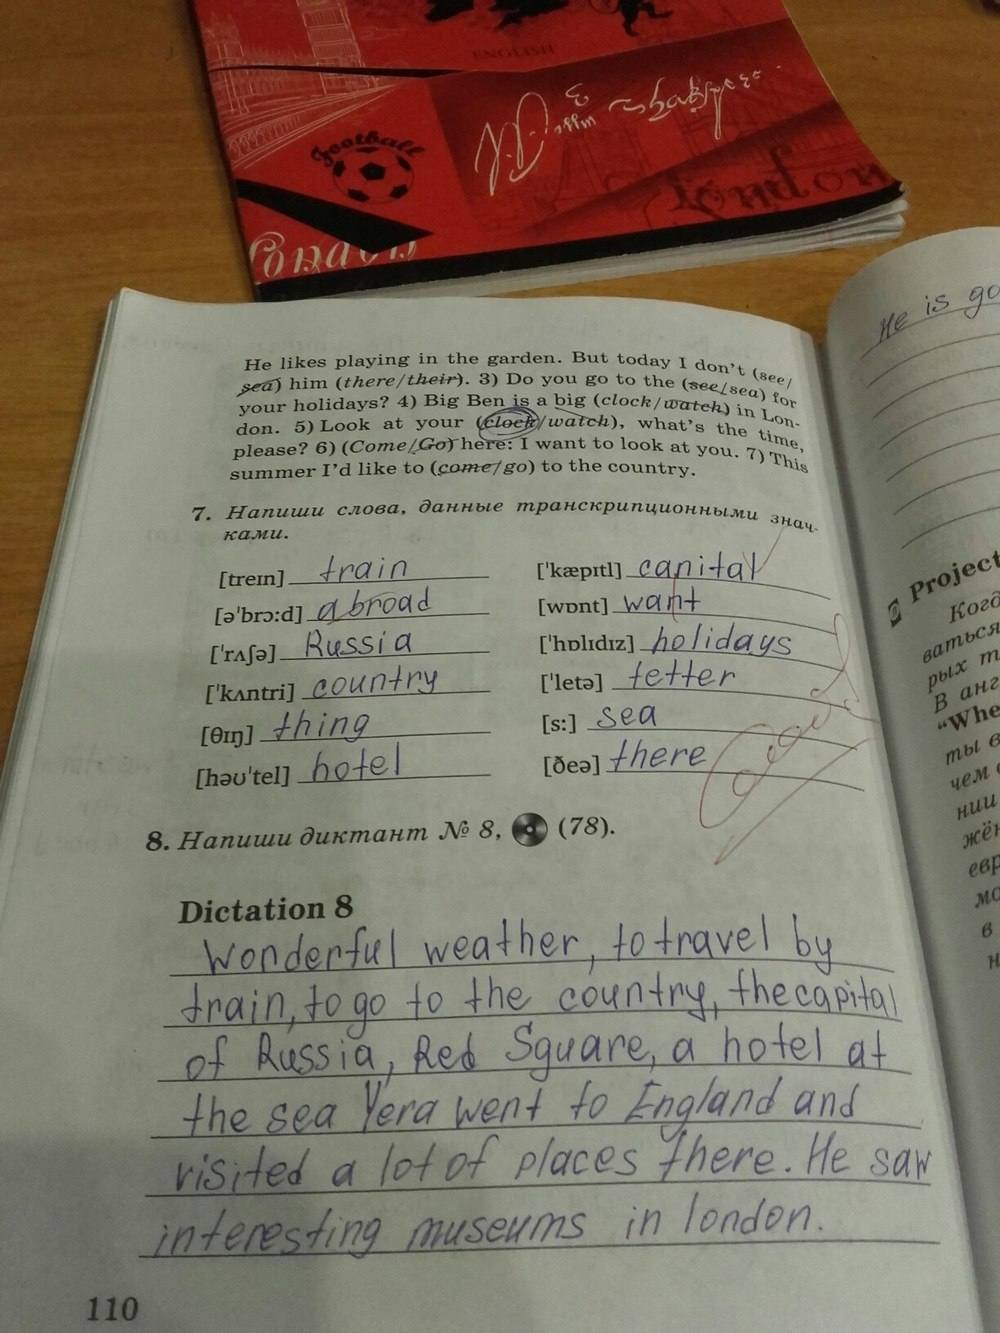 ENGLISH
Football
London
London
He is go
He likes playing in the garden. But today I don't (see/
sea) him (there/their). 3) Do you go to the (see/sea) for
your holidays? 4) Big Ben is a big (clock/watch) in Lon-
don. 5) Look at your (clock/watch), what's the time,
please? 6) (Come/Go) here: I want to look at you. 7) This
summer I'd like to (come/go) to the country.
7. Напиши слова, данные транскрипционными знач-
ками.
[treɪn] train
[ə'brɔ:d] abroad
['rʌʃə] Russia
['kʌntri] country
[θɪŋ] thing
[həʊ'tel] hotel
['kæpɪtl] canital
[wɒnt] want
['hɒlɪdɪz] holidays
['letə] tetter
[s:] sea
[ðeə] there
Good
8. Напиши диктант № 8, (78).
Dictation 8
Wonderful weather, to travel by
train, to go to the country, the capital
of Russia, Red Sguare, a hotel at
the sea Yera went to England and
visited a lot of places there. He saw
interesting museums in london.
110
Project
Когд
ваться
рых т
В анг
"Whe
ты в
чем
нии
жён
евр
мо
в
н